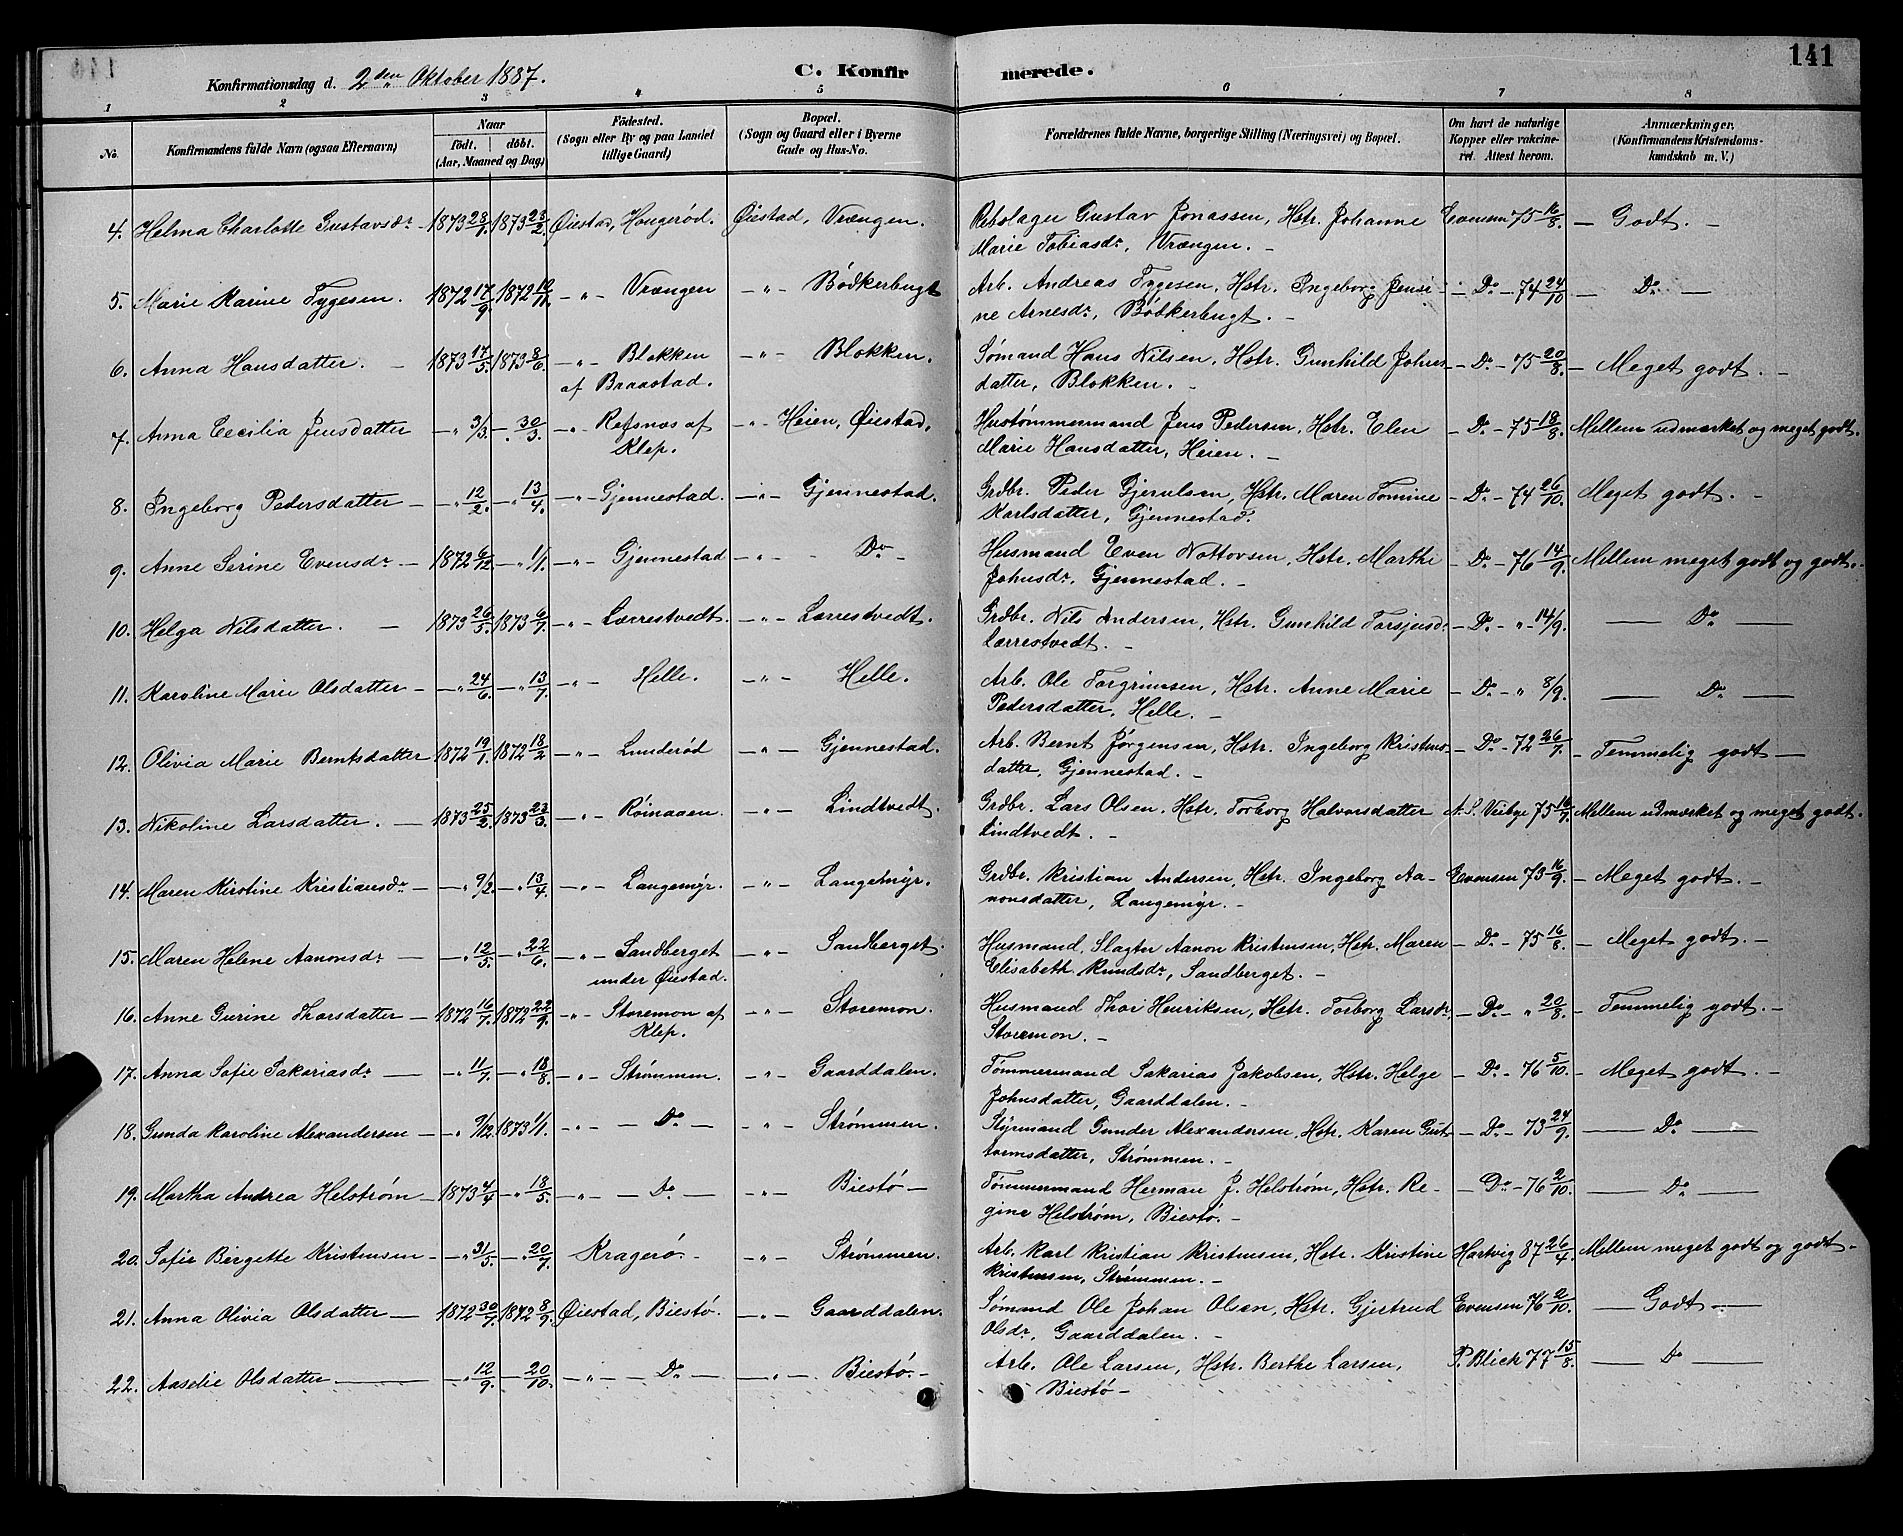 141
Konfirmationsdag d. 2den Oktober 1887.
C. Konfirmerede.
1 2 3 4 5 6 7 8
No.
Konfirmandens fulde Navn (ogsaa Efternavn)
Naar
födt. döbt.
(Aar, Maaned og Dag)
Födested.
(Sogn eller By og paa Landet
tillige Gaard)
Bopæl.
(Sogn og Gaard eller i Byerne
Gade og Hus-No.
Forældrenes fulde Navne, borgerlige Stilling (Næringsvei) og Bopæl.
Om havt de naturlige
Kopper eller vakcine-
ret. Attest herom.
Anmærkninger.
(Konfirmandens Kristendoms-
kundskab m. V.)
4. Helma Charlotte Gustavsdr. 1873 28/1. 1873 23/2. Øiestad, Hougerød. Øiestad, Vrængen. Rebslager Gustav Jonassen, Hstr. Johanne Evensen 75 16/8. — Godt. —
Marie Tobiasdr, Vrængen. —
5. Marie Karine Tygesen. 1872 17/9. 1872 10/11. — " — Vrængen — " — Bödkerbugt Arb. Andreas Tygesen, Hstr. Ingeborg Jensi- — Do — 74 24/10 — Do —
ne Arnesdr, Bödkerbugt. —
6. Anna Hansdatter. — 1873 17/5. 1873 8/6. — " — Blokken — " — Blokken. Sømand Hans Nilsen, Hstr. Gunhild Johns- — Do — 75 20/8. — Meget godt. —
af Braastad. datter, Blokken. —
7. Anna Cecilia Jensdatter — " 3/3. — " 30/3. — " — Refsnæs af — " — Heien, Øiestad. Hustømmermand Jens Pedersen, Hstr. Elen — Do — 75 18/8. Mellem udmærket og meget godt.
Klep. Marie Hansdatter, Heien. —
8. Ingeborg Pedersdatter — " 12/2. — " 13/4. — " — Gjennestad. — " — Gjennestad. Grdbr. Peder Gjerulsen, Hstr. Maren Tomine — Do — 74 26/10. Meget godt. —
Karlsdatter, Gjennestad.
9. Anne Serine Evensdr. — 1872 6/12 — " 1/1. — " — Gjennestad — " — Do — Husmand Even Nottovsen, Hstr. Marthe — Do — 76 14/9. Mellem meget godt og godt.
Johnsdr, Gjennestad. —
10. Helga Nilsdatter. — 1873 26/5. 1873 6/7. — " — Lærrestvedt. — " — Lærrestvedt. Grdbr. Nils Andersen, Hstr. Gunhild Torsjusdr. — Do — " 14/9. — Do —
Lærrestvedt. —
11. Karoline Marie Olsdatter — " 24/6. — " 13/7. — " — Helle. — " — Helle. Arb. Ole Torgrimsen, Hstr. Anne Marie — Do — " 8/9. — Do —
Pedersdatter, Helle. —
12. Olivia Marie Berntsdatter 1872 19/1. 1872 18/2 — " — Lunderød — " — Gjennestad. Arb. Bernt Jørgensen, Hstr. Ingeborg Kristens- — Do — 72 26/7. — Temmelig godt —
datter, Gjennestad. —
13. Nikoline Larsdatter. — 1873 25/2. 1873 23/3. — " — Rømaaen. — " — Lindtvedt. Grdbr. Lars Olsen, Hstr. Torborg Halvorsdatter N. S. Veibye 75 16/7. Mellem udmærket og meget godt.
Lindtvedt. —
14. Maren Kirstine Kristiansdr. — " 9/3. — " 13/4. — " — Langemyr. — " — Langemyr. Grdbr. Kristian Andersen, Hstr. Ingeborg Aa- Evensen 73 16/9. — Meget godt. —
nonsdatter, Langemyr. —
15. Maren Helene Aanonsdr. — " 12/5. — " 22/6. — " — Sandberget — " — Sandberget. Husmand, Slagter Aanon Kristensen, Hstr. Maren — Do — 75 16/8. — Meget godt. —
under Øiestad. Elisabeth Knudsdr, Sandberget. —
16. Anne Gurine Thorsdatter — 1872 16/7. 1872 22/9. — " — Storemon af — " — Storemon. Husmand Thor Henriksen, Hstr. Torborg Larsdr. — Do — " 20/8. — Temmelig godt. —
Klep. Storemon. —
17. Anna Sofie Sakariasdr. — " 11/7. — " 18/8. — " — Strømmen. — " — Gaarddalen. Tømmermand Sakarias Jakobsen, Hstr. Helge — Do — 76 5/10. — Meget godt. —
Johnsdatter, Gaarddalen. —
18. Gunda Karoline Alexandersen — " 9/12. 1873 1/1. — " — Do — — " — Strømmen. Styrmand Gunder Alexandersen, Hstr. Karen Gut- — Do — 73 24/9. — Do —
tormsdatter, Strømmen. —
19. Martha Andrea Helstrøm — 1873 4/4. — " 18/5. — " — Do — — " — Biestø — Tømmermand Herman J. Helstrøm, Hstr. Re- — Do — 76 2/10. — Do —
gine Helstrøm, Biestø. —
20. Sofie Birgette Kristensen — " 31/5. — " 20/7. Kragerø. — " — Strømmen. Arb. Karl Kristian Kristensen, Hstr. Kristine Hartvig 87 26/4. Mellem meget godt og godt. —
Kristensen, Strømmen. —
21. Anna Olivia Olsdatter — 1872 30/7. 1872 8/9. Øiestad, Biestø. — " — Gaarddalen. Sømand Ole Johan Olsen, Hstr. Gjertrud Evensen 76 2/10. — Godt —
Olsdr, Gaarddalen. —
22. Aaselie Olsdatter — " 12/9. — 20/10. — " — Do — — " — Biestø. — Arb. Ole Larsen, Hstr. Berthe Larsen, P. Blich 77 15/8. — Do —
Biestø —